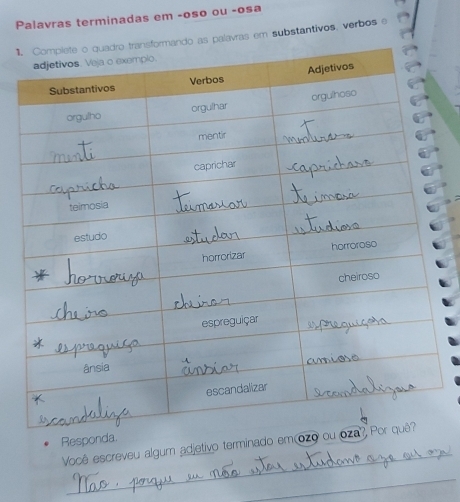 Palavras terminadas em -oso ou -osa
1. Complete o quadro transformando as palavras em substantivos, verbos e
adjetivos. Veja o exemplo.
Substantivos Verbos Adjetivos
orgulho orgulhar orgulhoso
menti mentir
capricha caprichar caprichosa
teimosia teimosiar teimosa
estudo estudar estudiosa
* horroriza horrorizar horroroso
cheiro cheirar cheiroso
* espreguiça espreguiçar
ânsia ansiar
* escandaliza escandalizar
• Responda.
Você escreveu algum adjetivo terminado em ozo ou oza? Por quê?
Não, porque eu não